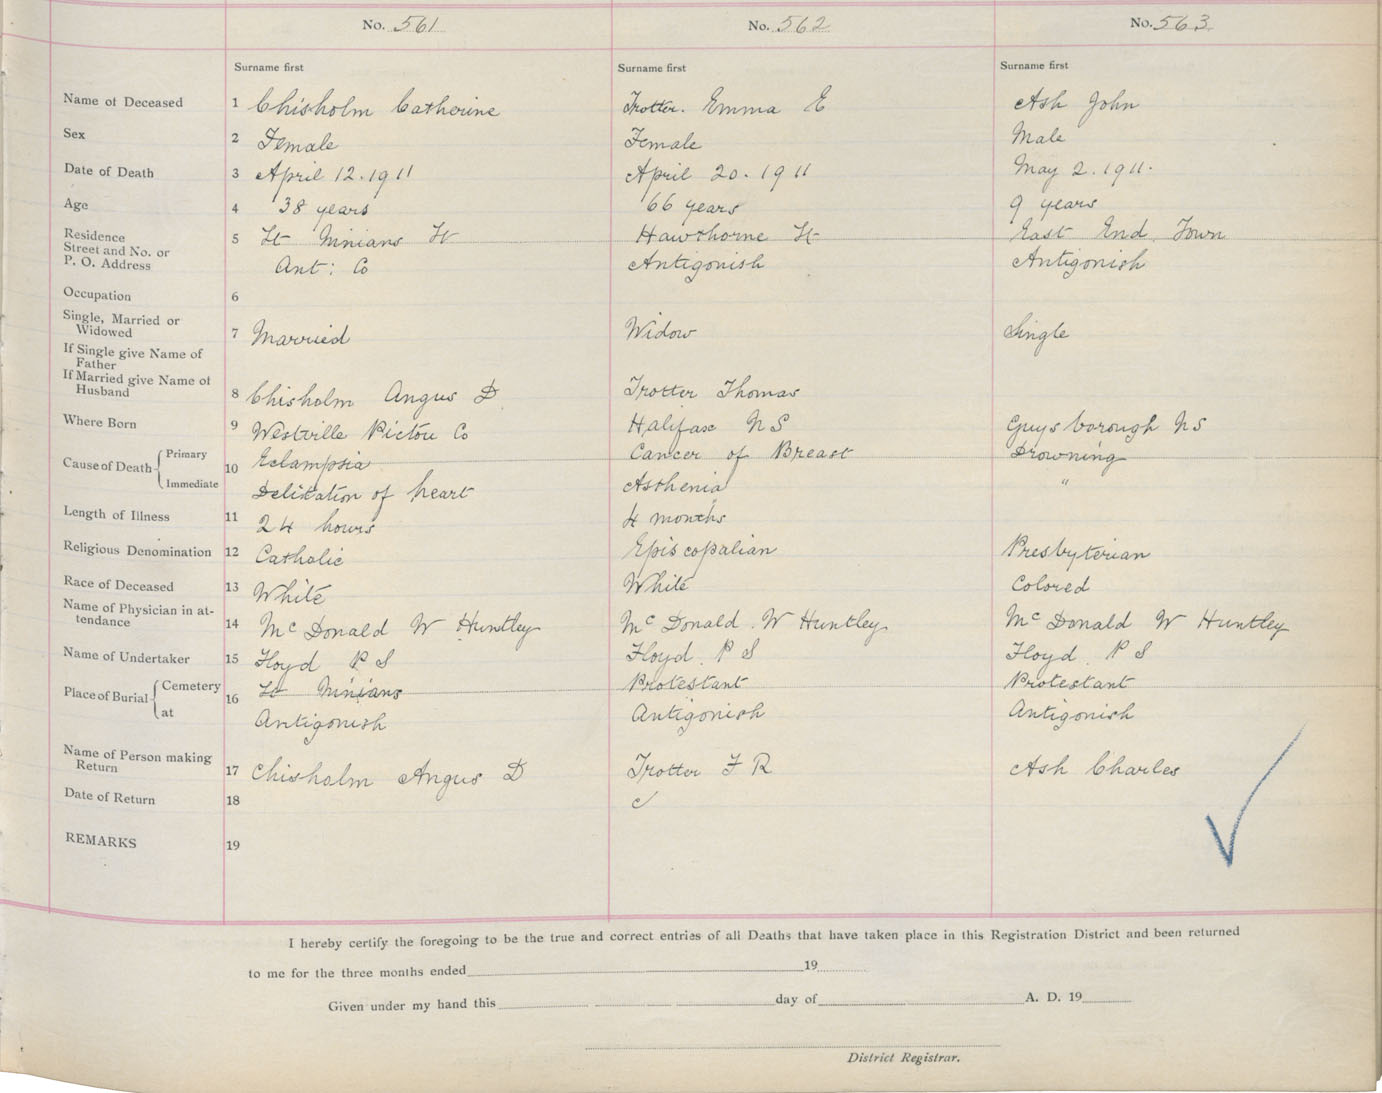 No. 561 No. 562 No. 563
Surname first Surname first Surname first
Name of Deceased 1 Chisholm Catherine Trotter. Emma E Ash John
Sex 2 Female Female Male
Date of Death 3 April 12. 1911 April 20. 1911 May 2. 1911.
Age 4 38 years 66 years 9 years
Residence 5 St Ninians St Hawthorne St East End Town
Street and No. or
P. O. Address Ant: Co Antigonish Antigonish
Occupation 6
Single, Married or
Widowed 7 Married Widow Single
If Single give Name of
Father
If Married give Name of
Husband 8 Chisholm Angus D Trotter Thomas
Where Born 9 Westville Pictou Co Halifax N S Guysborough N S
Cause of Death Primary 10 Eclampsia Cancer of Breast Drowning
Immediate Delitation of heart Asthenia "
Length of Illness 11 24 hours 4 months
Religious Denomination 12 Catholic Episcopalian Presbyterian
Race of Deceased 13 White White Colored
Name of Physician in at-
tendance 14 McDonald W Huntley McDonald. W Huntley McDonald W Huntley
Name of Undertaker 15 Floyd P S Floyd. P S Floyd. P S
Place of Burial Cemetery 16 St Ninians Protestant Protestant
at Antigonish Antigonish Antigonish
Name of Person making
Return 17 Chisholm Angus D Trotter F R Ash Charles
Date of Return 18
REMARKS 19
I hereby certify the foregoing to be the true and correct entries of all Deaths that have taken place in this Registration District and been returned
to me for the three months ended 19
Given under my hand this day of A. D. 19
District Registrar.